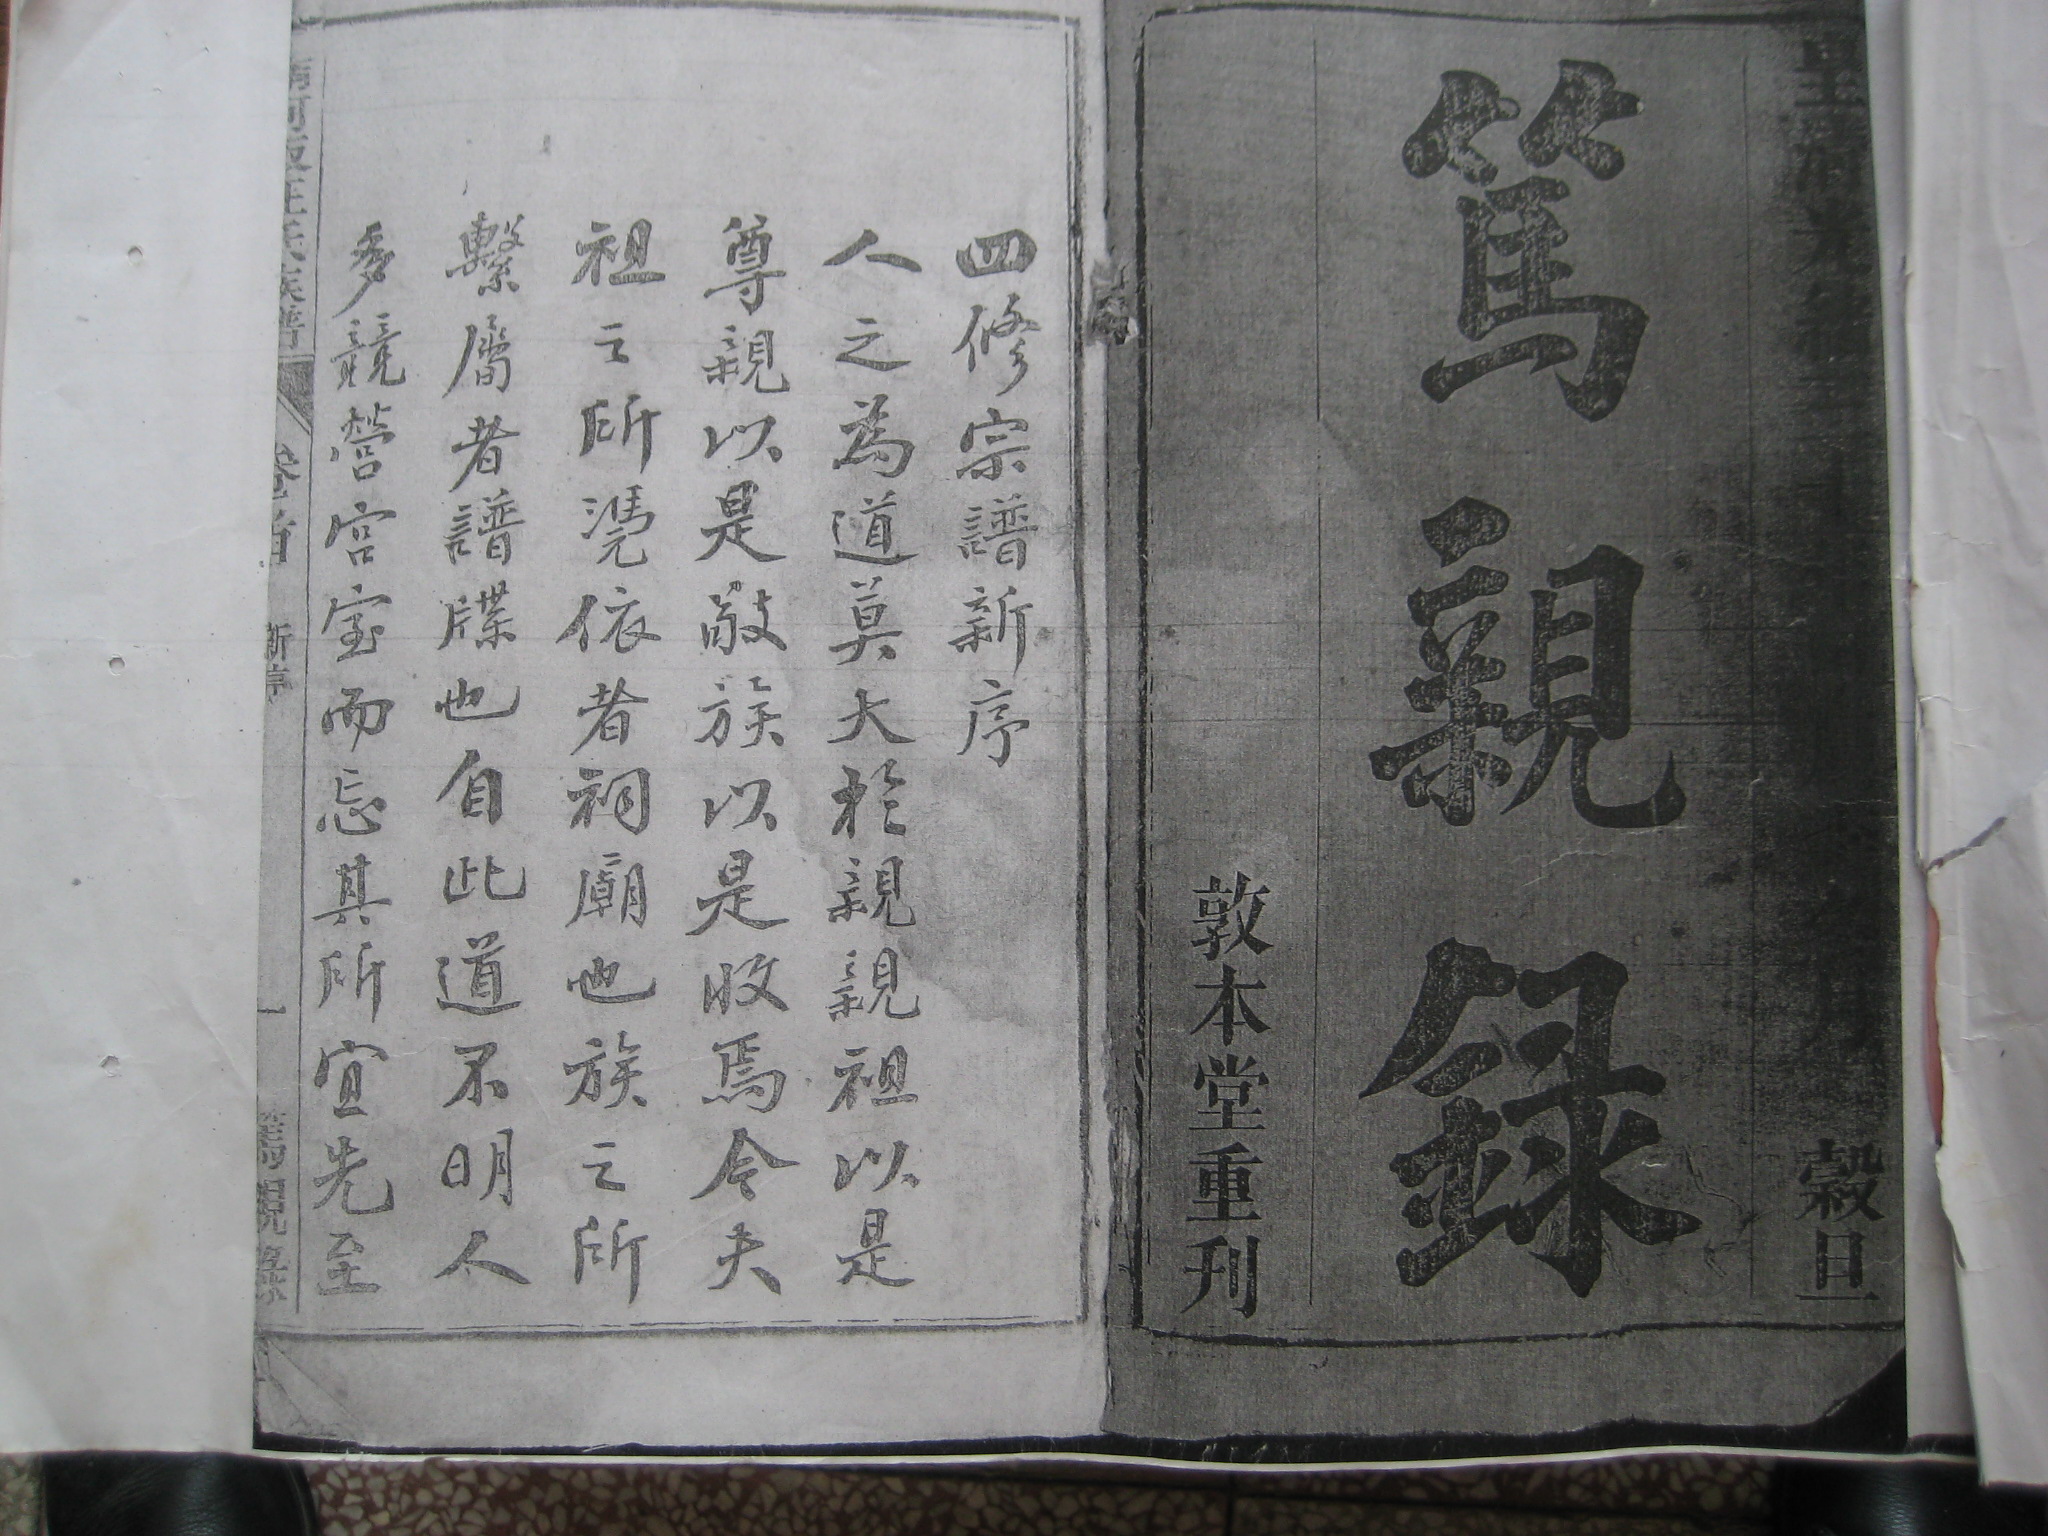 皇清光緒三十
月
穀旦
篤親錄
敦本堂重刊
四修宗譜新序
人之為道莫大於親親祖以是
尊親以是敬族以是收焉令夫
祖之所凴依者祠廟也族之所
繫屬者譜牒也自此道不明人
多競營宮室而忘其所宜先至
河 汪氏族譜 卷首 新序 一 篤親錄